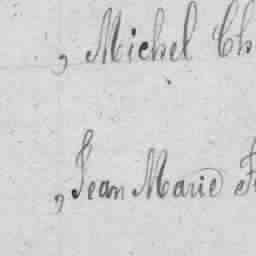 , Michel Ch
, Jean Marie